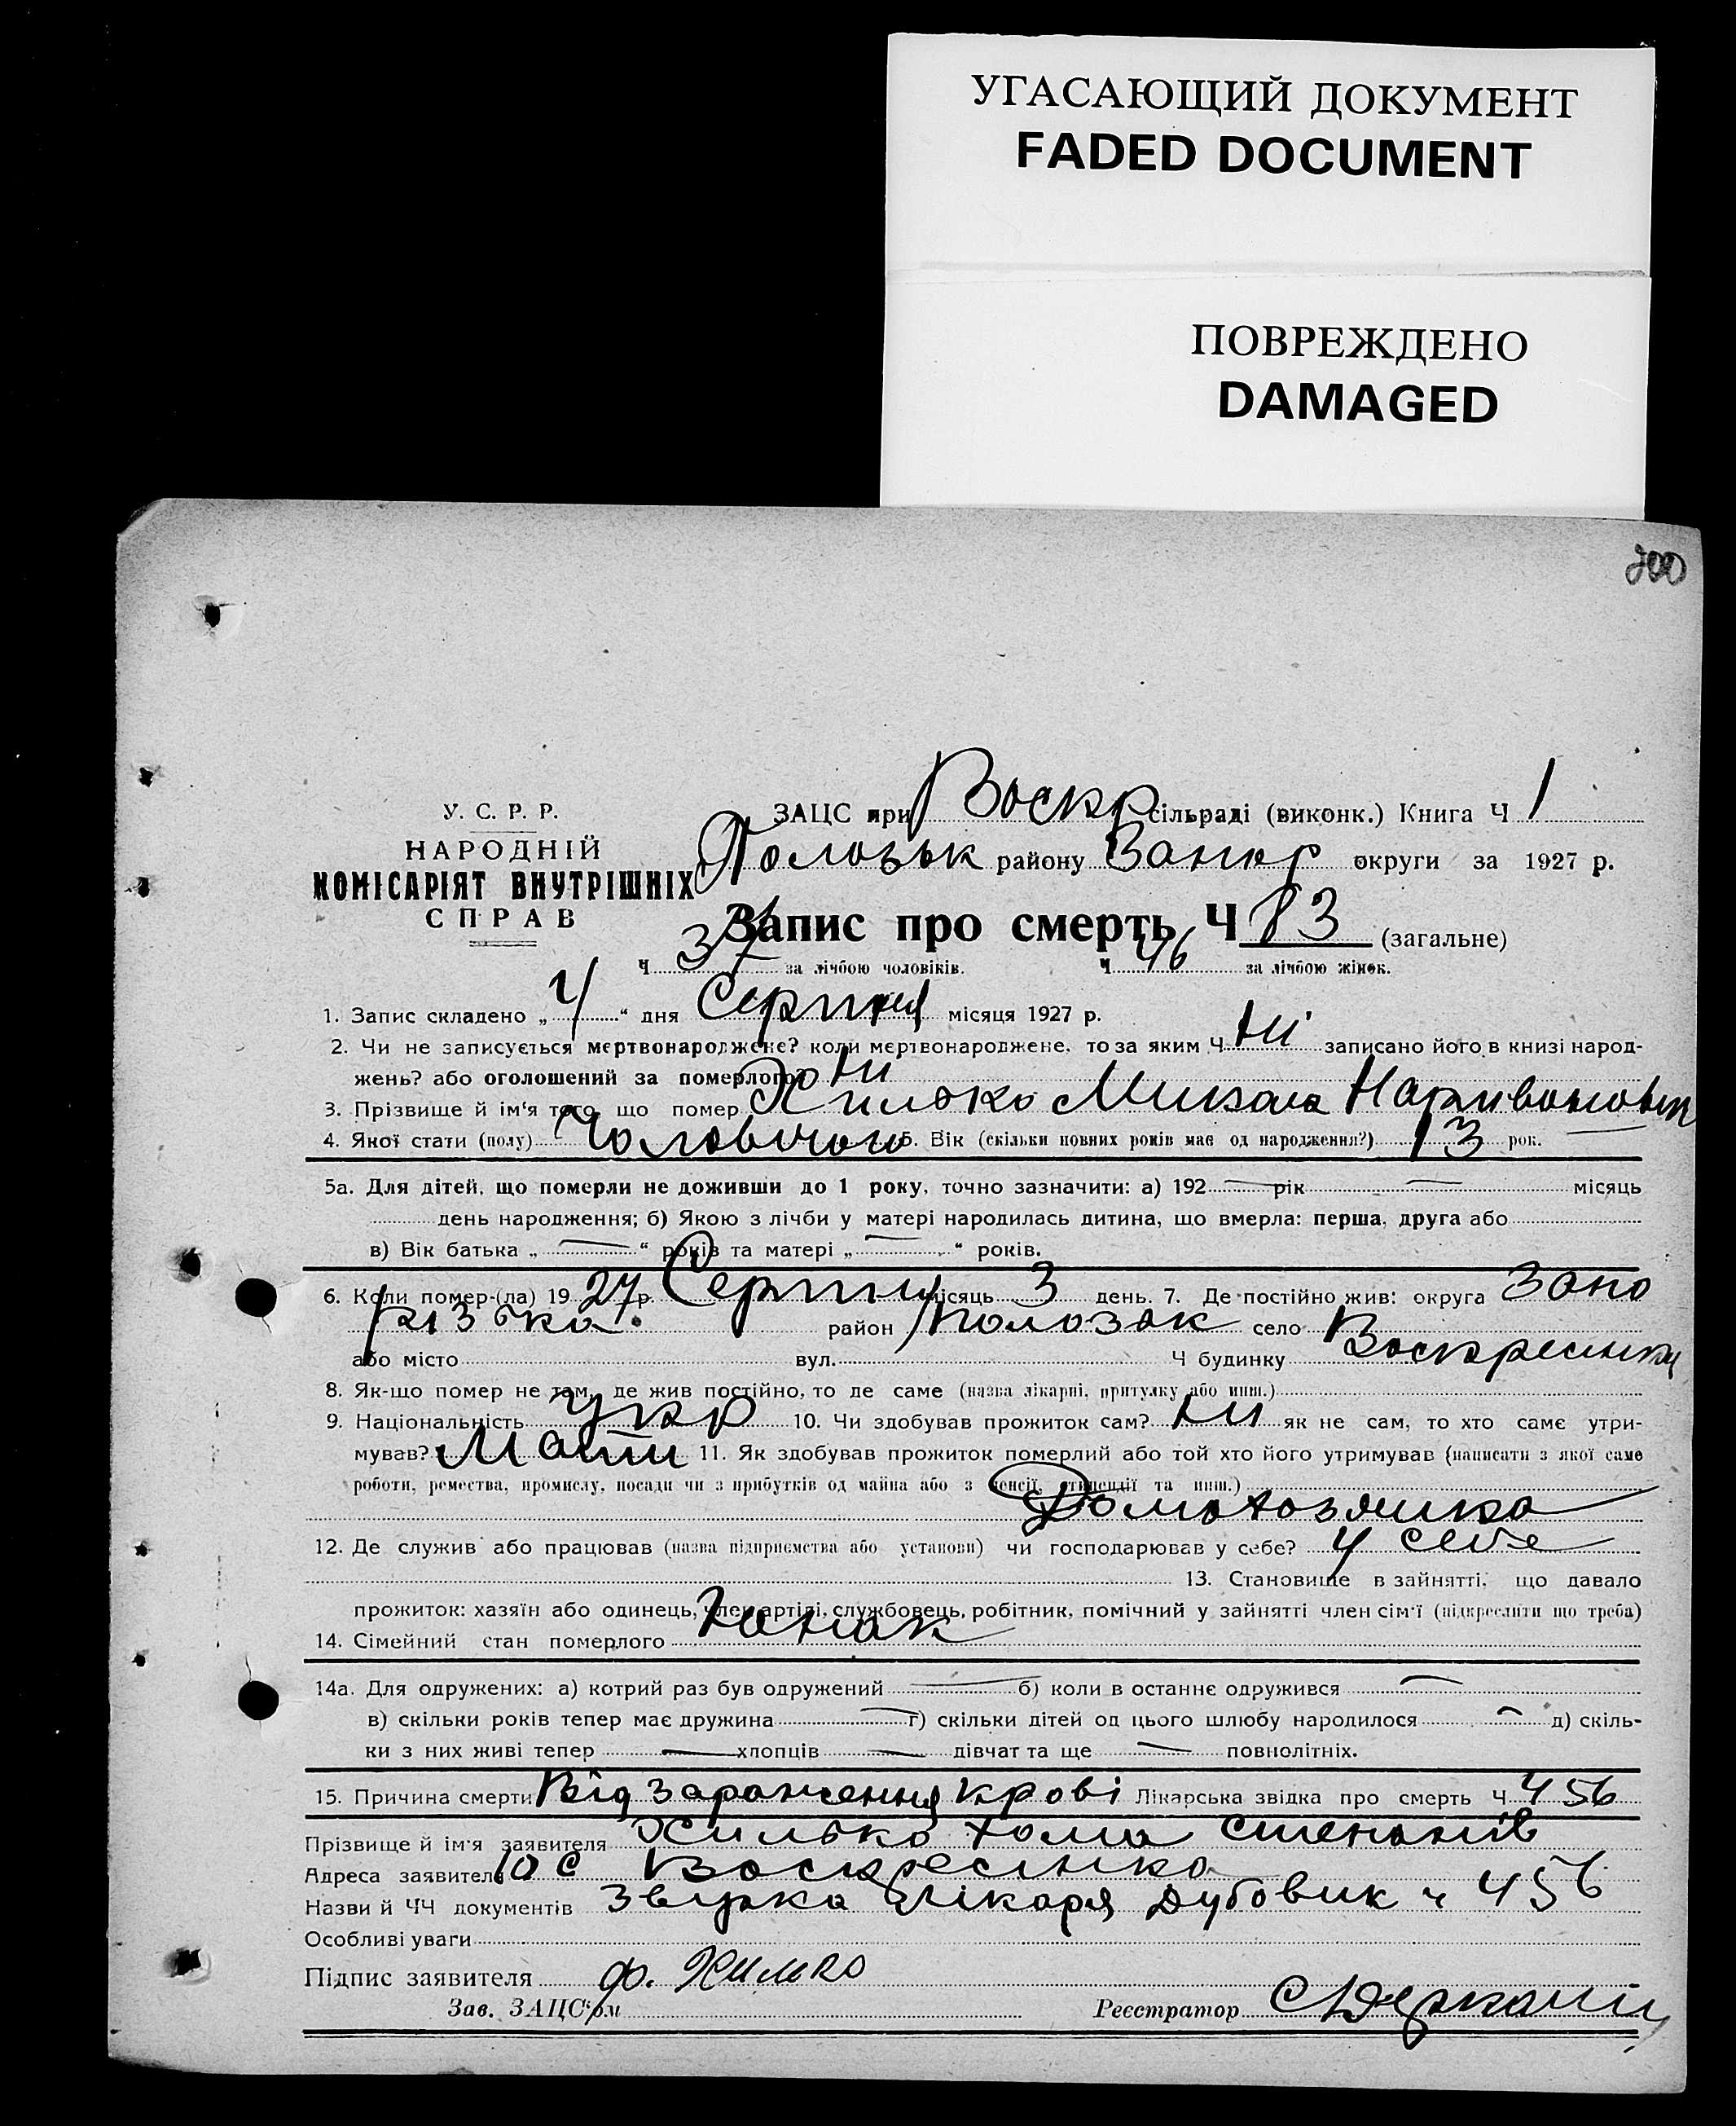 УГАСАЮЩИЙ ДОКУМЕНТ
FADED DOCUMENT
ПОВРЕЖДЕНО
DAMAGED
200
У. С. Р. Р.
НАРОДНІЙ
КОМІСАРІЯТ ВНУТРІШНІХ
СПРАВ
ЗАЦС при Воскр сільраді (виконк.) Книга Ч 1
Пологськ району Запор округи за 1927 р.
Запис про смерть Ч 83 (загальне)
Ч 37 за лічбою чоловіків. Ч 46 за лічбою жінок.
1. Запис складено „ 4 “ дня Серпня місяця 1927 р.
2. Чи не записується мертвонароджене? коли мертвонароджене, то за яким Ч Ні записано його в книзі народ-
жень? або оголошений за померлого? Ни
3. Прізвище й ім'я того що помер Хилько Микола
4. Якої стати (полу) Чоловічого 5. Вік (скільки повних років має од народження?) 13 рок.
5а. Для дітей, що померли не доживши до 1 року, точно зазначити: а) 192 — рік — місяць
день народження; б) Якою з лічби у матері народилась дитина, що вмерла: перша, друга або
в) Вік батька „ — “ років та матері „ — “ років.
6. Коли помер-(ла) 19 27 р. Серпня місяць 3 день. 7. Де постійно жив: округа Запо
різька. район село Воскресинка
або місто вул. Ч будинку
8. Як-що помер не там, де жив постійно, то де саме (назва лікарні, притулку або инш.)
9. Національність Укр 10. Чи здобував прожиток сам? Ни як не сам, то хто саме утри-
мував? Мати 11. Як здобував прожиток померлий або той хто його утримував (написати з якої саме
роботи, ремества, промислу, посади чи з прибутків од майна або з пенсії, стипендії та инш.)
Домохозяика
12. Де служив або працював (назва підприємства або установи) чи господарював у себе? У себе
13. Становище в зайнятті, що давало
прожиток: хазяїн або одинець, член артілі, службовець, робітник, помічний у зайнятті член сім'ї (підкреслити що треба)
14. Сімейний стан померлого Юнак
14а. Для одружених: а) котрий раз був одружений — б) коли в останнє одружився —
в) скільки років тепер має дружина — г) скільки дітей од цього шлюбу народилося — д) скіль-
ки з них живі тепер — хлопців — дівчат та ще — повнолітніх.
15. Причина смерти Від зараження крові Лікарська звідка про смерть Ч 456
Прізвище й ім'я заявителя Хилько Хома
Адреса заявителя с Воскресинка
Назви й ЧЧ документів лікаря Дубовик ч 456
Особливі уваги
Підпис заявителя Ф. Хилько
Зав. ЗАЦС'ом Реєстратор